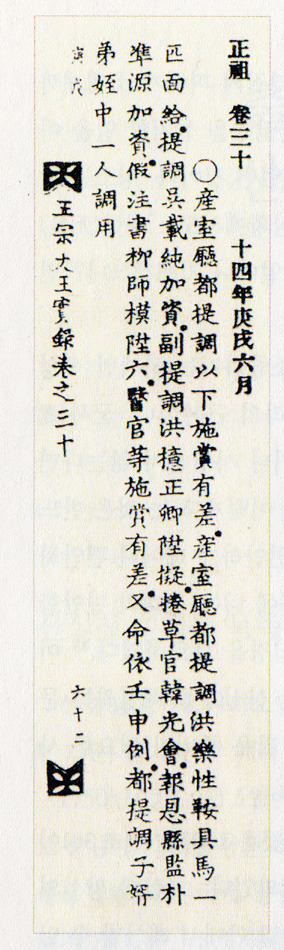 正祖 卷三十 十四年庚戌六月
○産室廳都提調以下施賞有差産室廳都提調洪樂性鞍具馬一
匹面給提調吳載純加資副提調洪檍正卿陞擬捲草官韓光會報恩縣監朴
準源加資假注書柳師模陞六醫官等施賞有差又命依壬申例都提調子婿
弟姪中一人調用
庚戌
正宗大王實錄卷之三十
六十二